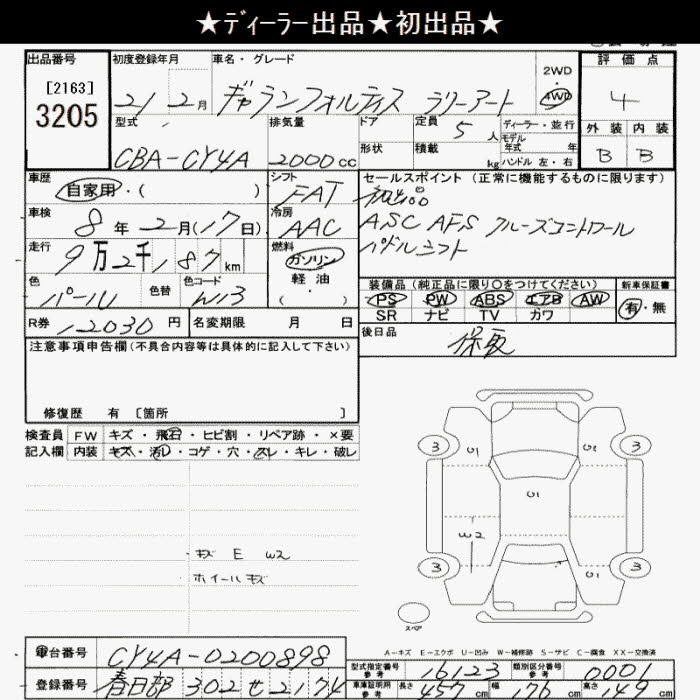 ★ディーラー出品★初出品★
出品番号
[2163]
3205
初度登録年月
21 2月
車名・グレード
ギャランフォルティス ラリーアート
2WD
4WD
評価点
4
外装 内装
B B
型式
CBA-CY4A
排気量
2000cc
ドア
形状
定員 5人
積載 kg
ディーラー・並行
モデル年式 年
ハンドル 左・右
車歴
自家用・( )
シフト
FAT
セールスポイント (正常に機能するものに限ります)
初出品
ASC AFS クルーズコントロール
パドルシフト
車検
8年 2月(17日)
冷房
AAC
走行
9万2千187km
燃料
ガソリン
軽油
( )
色
パール
色替
色コード
W13
装備品 (純正品に限り○をつけてください)
PS PW ABS エアB AW
SR ナビ TV カワ
新車保証書
有・無
R券 12030円
名変期限 月 日
後日品
保取
注意事項申告欄 (不具合内容等は具体的に記入して下さい)
修復歴 有 [箇所 ]
検査員記入欄
FW キズ・飛石・ヒビ割・リペア跡・×要
内装 キズ・汚レ・コゲ・穴・スレ・キレ・破レ
・キズ E W2
・ホイールキズ
3 3
3 3
スペア
A－キズ E－エクボ U－凹み W－補修跡 S－サビ C－腐食 XX－交換済
車台番号 CY4A-0200898
登録番号 春日部 302 せ 2174
型式指定番号 参考 16123
類別区分番号 参考 0001
車庫証明用 参考 長さ 457cm 幅 176cm 高さ 149cm